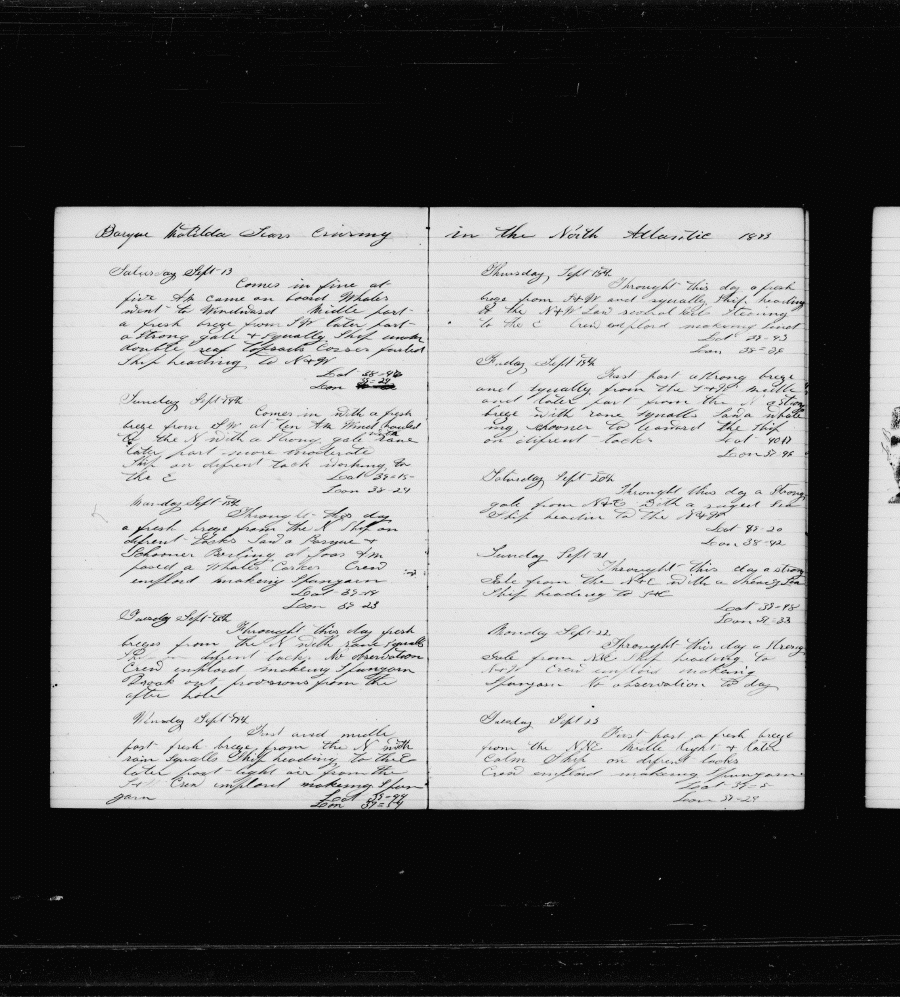 Barque Matilda Sears Cruising
Saturday Sept 13
Comes in fine at
five Am came on board Whales
went to Windward Middle part
a fresh breze from SW later part
a Strong gale + squally Ship under
double reef topsails Corses furled
Ship heading to N+W
Lat 38-46
Lon
Sunday Sept 14th
Comes in with a fresh
breze from SW at ten Am Wind hauled
to the N with a Strong gale + rane
later part more moderate
Ship on difrent tack working to
the E
Lat 39-15
Lon 38-24
Monday Sept 15th
Throught this day
a fresh breze from the N Ship on
difrent tacks Saw a Barque +
Schooner Boiling at foor Am
pased a Whales Carkes Crew
emploid makeing Spunyarn
Lat 39-14
Lon 39 23
Tuesday Sept 16th
Throught this day fresh
brezes from the N with rane squalls
Ship on difrent tacks No observation
Crew emploid makeing Spunyarn
Broak out provisions from the
after hole
Wensday Sept 17th
First and midle
part fresh breze from the N with
rain Squalls Ship heading to the E
later part light air from the
Crew emploid makeing Spun
yarn
Lat 39-44
Lon 37-54
in the North Atlantic 1873
Thursday Sept 18th
Throught this day a fresh
breze from S+W and squally Ship heading
to the N+W Saw Steering
to the E Crew emploid makeing
Lat 39-43
Lon 38-39
Friday Sept 19th
First part a strong breze
and squally from the S+W midle
and later part from the N a strong
breze with rane squalls Saw a whale
ing schooner to leward the Ship
on difrent tacks
Lat 40 17
Lon 37-46
Saturday Sept 20th
Throught this day a Strong
gale from N+E with a ruged Sea
Ship headin to the N+W
Lat 39-20
Lon 38-42
Sunday Sept 21
Throught this day a strong
Gale from the N+E with a heavy Sea
Ship heading to S+E
Lat 39-48
Lon 38-33
Monday Sept 22
Throught this day a strong
Gale from N+E Ship heading to
N+W Crew emploid makeing
Spunyarn No observation to day
Tuesday Sept 23
First part a fresh breze
from the NNE Midle light + later
Calm Ship on difrent tacks
Crew emploid makeing Spunyarn
Lat 39-5
Lon 37-29